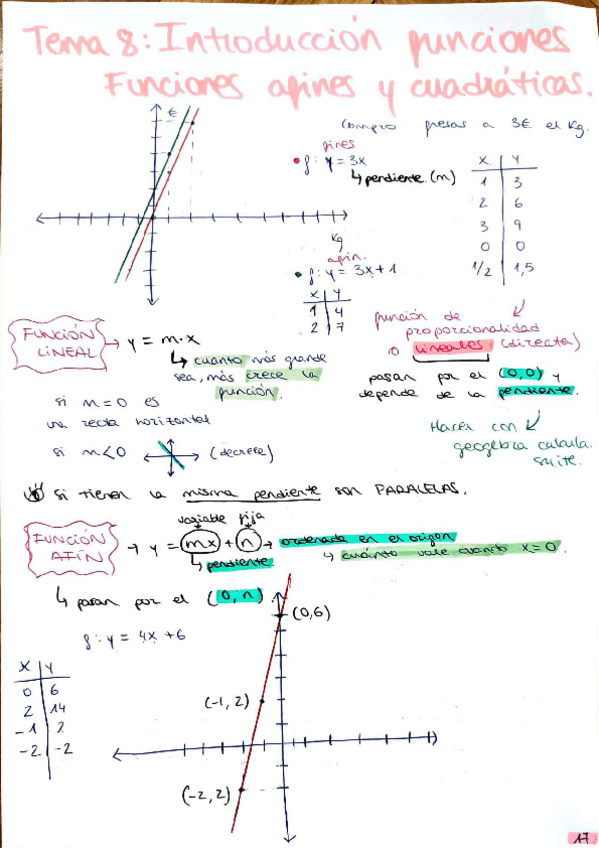 Tema 8: Introducción funciones
Funciones afines y cuadráticas.
€
Compro fresas a 3€ el Kg.
• f: y = 3x
↳ pendiente. (m)
x | y
1 | 3
2 | 6
3 | 9
0 | 0
1/2 | 1,5
Kg
afin.
• f: y = 3x + 1
x | y
1 | 4
2 | 7
función de
proporcionalidad
o lineales (directa)
pasan por el (0,0) y
depende de la pendiente.
Hacer con
geogebra calcula.
suite.
FUNCIÓN
LINEAL → y = m·x
↳ cuanto más grande
sea, más crece la
función.
si m = 0 es
una recta horizontal
si m < 0 (decrece)
Si tienen la misma pendiente son PARALELAS.
variable fija
FUNCIÓN
AFÍN → y = mx + n → ordenada en el origen
↳ pendiente ↳ cuánto vale cuando x = 0.
↳ pasan por el (0, n)
f: y = 4x + 6
x | y
0 | 6
2 | 14
-1 | 2
-2 | -2
(0,6)
(-1, 2)
(-2, 2)
17